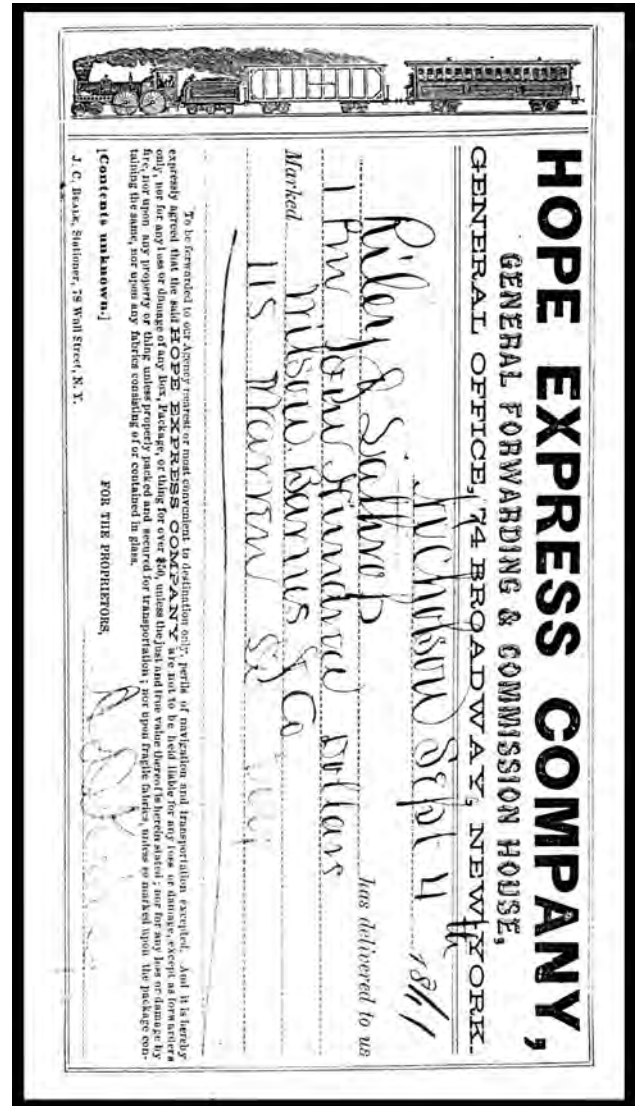 HOPE EXPRESS COMPANY,
GENERAL FORWARDING & COMMISSION HOUSE,
GENERAL OFFICE, 74 BROADWAY, NEW YORK.
Nicholson Sept 4th 18
Riley & Lathrop has delivered to us
1 Four Hundred Dollars
Marked Wilson Barnes & Co
115 Warren St
To be forwarded to our Agency nearest or most convenient to destination only, perils of navigation and transportation excepted. And it is hereby
expressly agreed that the said HOPE EXPRESS COMPANY are not to be held liable for any loss or damage, except as forwarders
only, nor for any loss or damage of any Box, Package, or thing for over $50, unless the just and true value thereof is herein stated; nor for any loss or damage by
fire, nor upon any property or thing unless properly packed and secured for transportation; nor upon fragile fabrics, unless so marked upon the package con-
taining the same, nor upon any fabrics consisting of or contained in glass.
[Contents unknown.] FOR THE PROPRIETORS,
J. C. BEALE, Stationer, 79 Wall Street, N. Y.